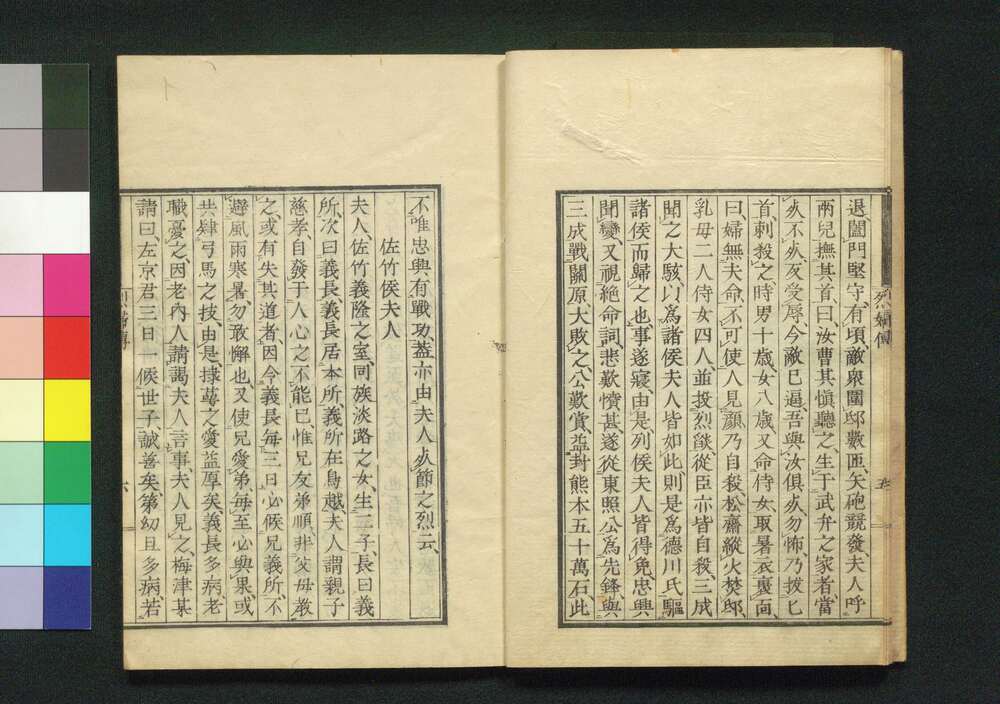 退、闔門堅守、有頃敵衆圍邸數匝、矢砲競發、夫人呼
兩兒撫其首曰、汝曹其愼聽之、生于武弁之家者、當
死不死、反受辱、今敵已逼、吾與汝俱死、勿怖、乃拔匕
首刺殺之、時男十歲、女八歲、又命侍女、取暑衣裏面
曰、婦無夫命、不可使人見顏、乃自殺、松齋縱火焚邸、
乳母二人侍女四人並投烈燄、從臣亦皆自殺、三成
聞之大駭、以爲諸侯夫人皆如此、則是爲德川氏驅
諸侯而歸之也、事遂寢、由是列侯夫人皆得免、忠興
聞變、又視絕命詞、悲歎憤甚、遂從東照公爲先鋒、與
三成戰關原、大敗之、公歎賞、益封熊本五十萬石、此
烈婦傳
五
不唯忠興有戰功、蓋亦由夫人死節之烈云、
佐竹侯夫人
夫人、佐竹義隆之室、同族淡路之女、生三子、長曰義
所、次曰義長、義長居本所、義所在鳥越、夫人謂親子
慈孝、自發于人心之不能已、惟兄友弟順、非父母教
之、或有失其道者、因令義長每三日必候兄義所、不
避風雨寒暑、勿敢懈也、又使兄愛弟、每至必與果、或
共肄弓馬之技、由是、棣萼之愛益厚矣、義長多病、老
職憂之、因老內人請謁夫人言事、夫人見之、梅津某
請曰、左京君三日一候世子、誠善矣、第幼且多病、若
六